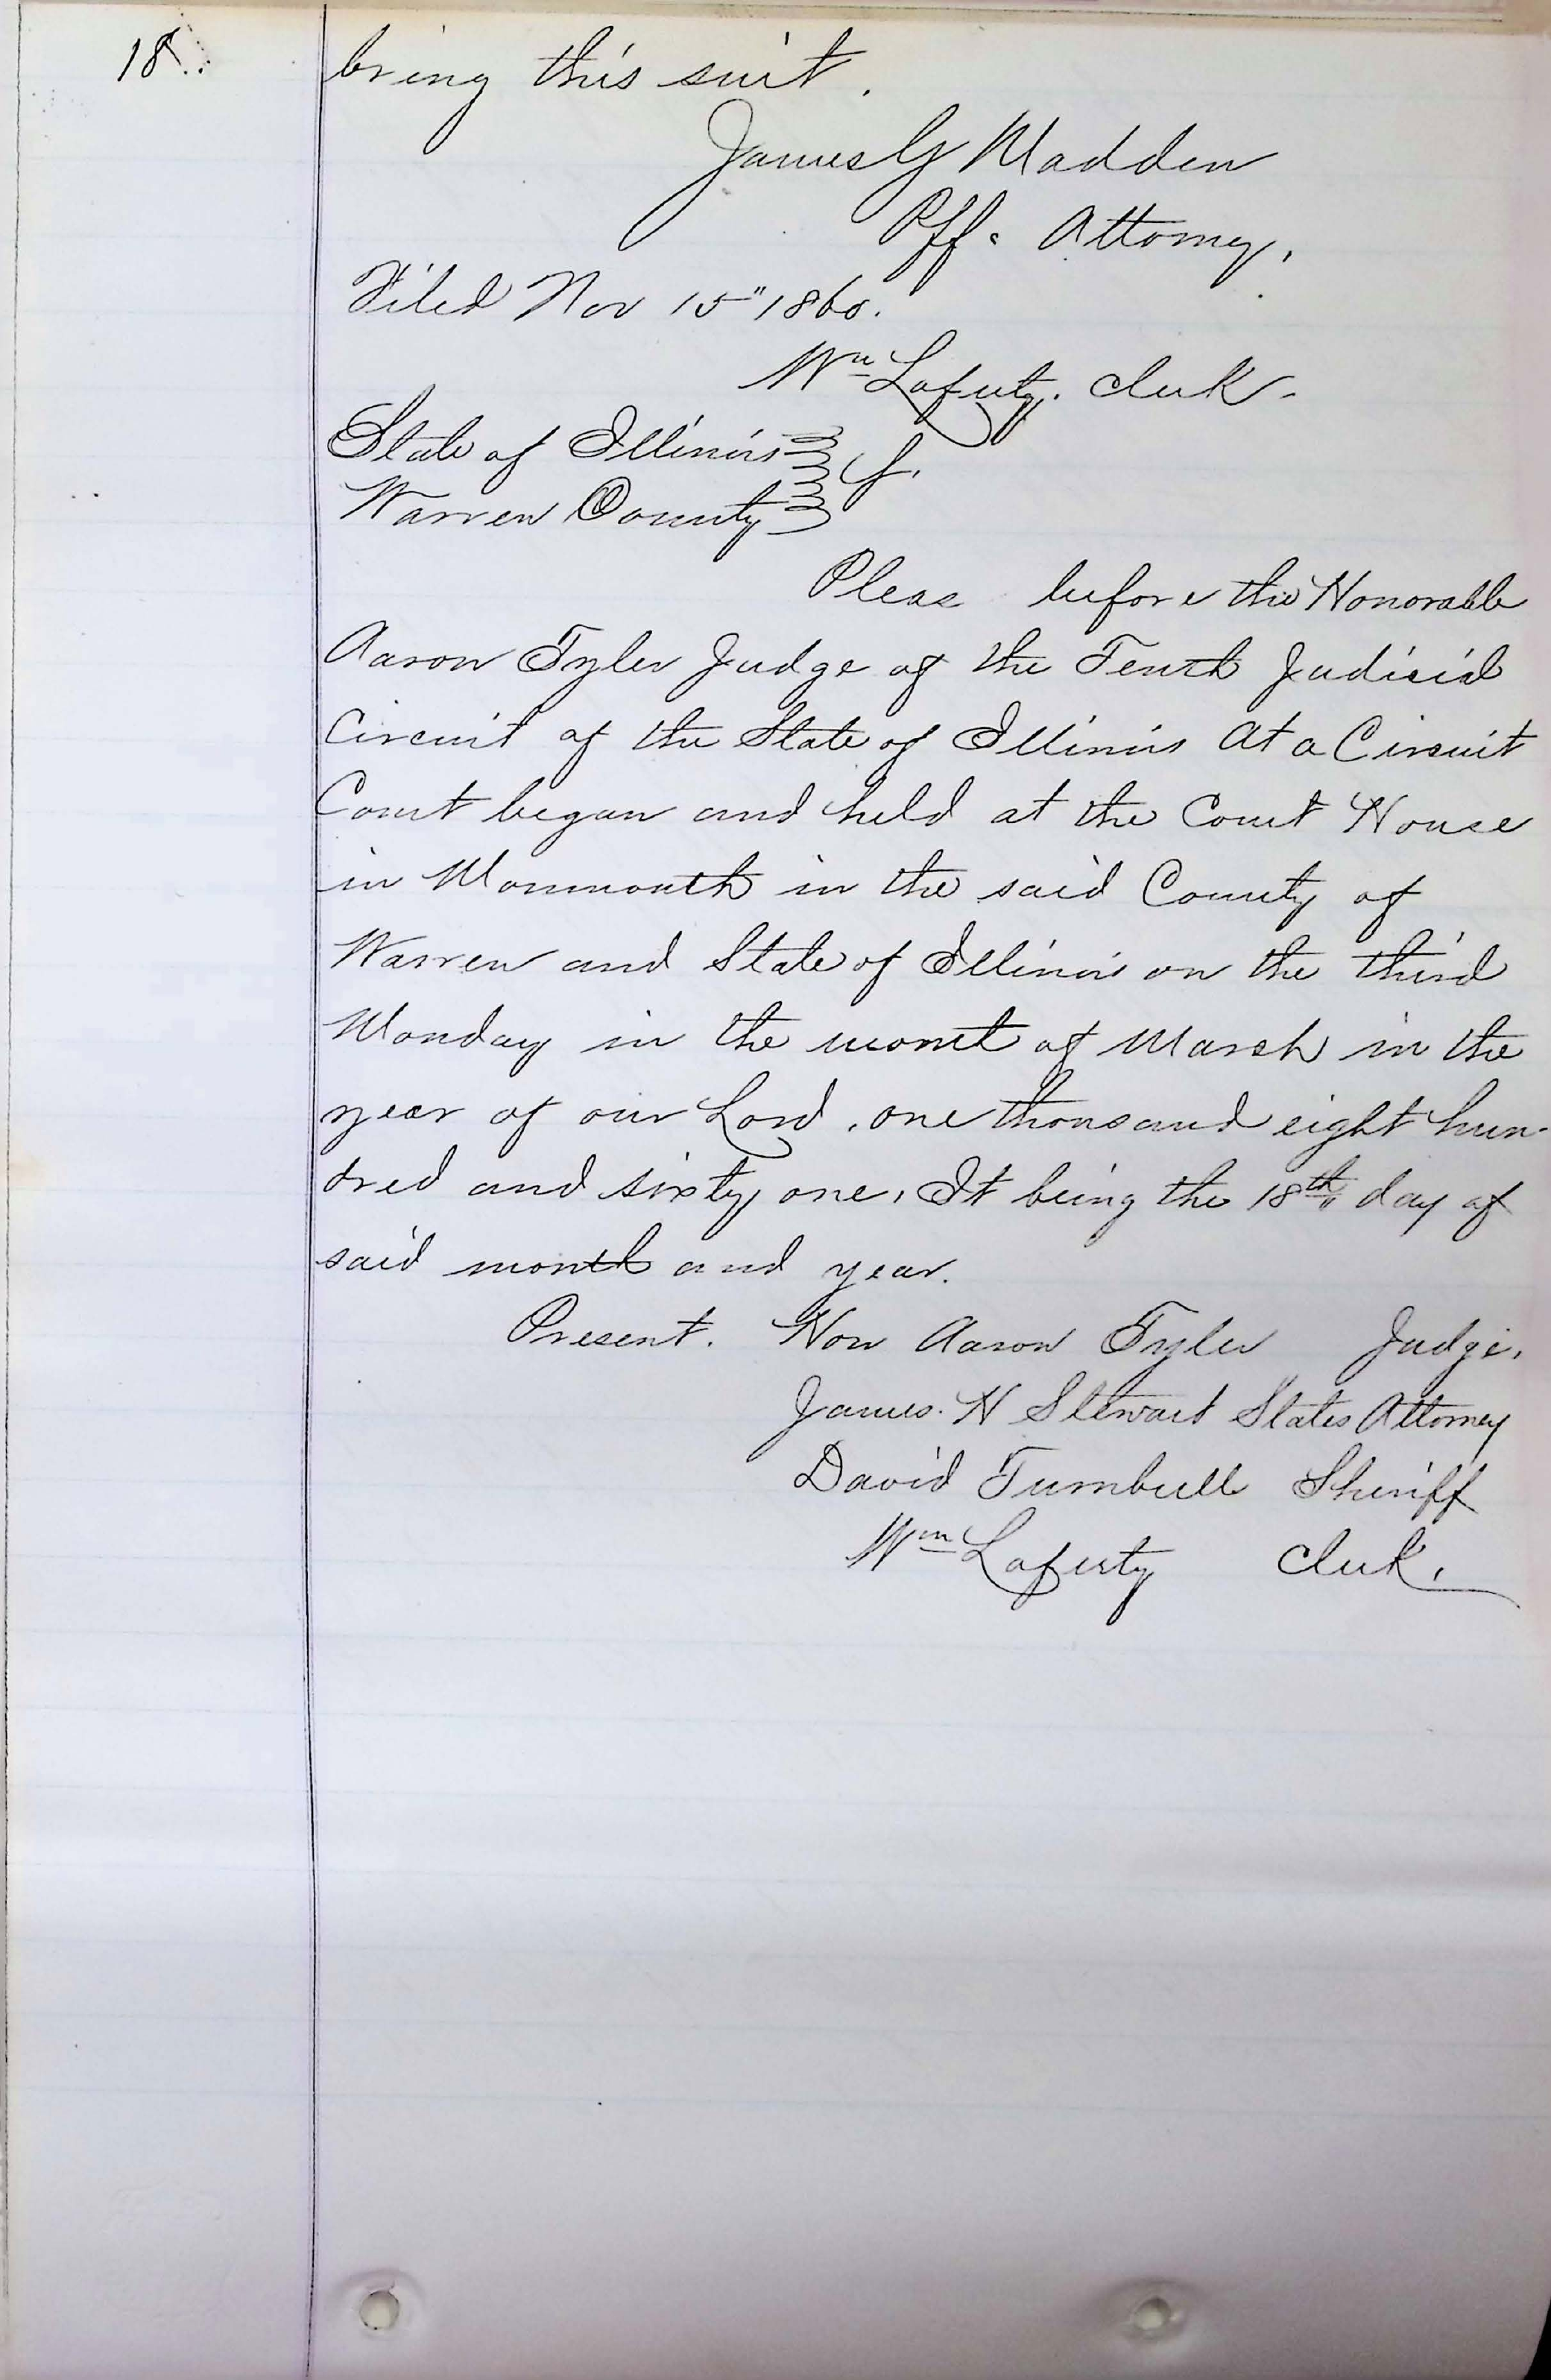 18.
bring this suit.
James G Madden
Plff. Attorney.
Filed Nov 15" 1860.
Wm Laferty. Clerk.
State of Illinois
Warren County } ss.
Pleas before the Honorable
Aaron Tyler Judge of the Tenth Judicial
Circuit of the State of Illinois At a Circuit
Court began and held at the Court House
in Monmouth in the said County of
Warren and State of Illinois on the third
Monday in the mont of March in the
year of our Lord, one thousand eight hun-
dred and sixty one, It being the 18th day of
said month and year.
Present. Hon Aaron Tyler Judge.
James. H Stewart States Attorney
David Turnbull Sheriff
Wm Laferty Clerk.